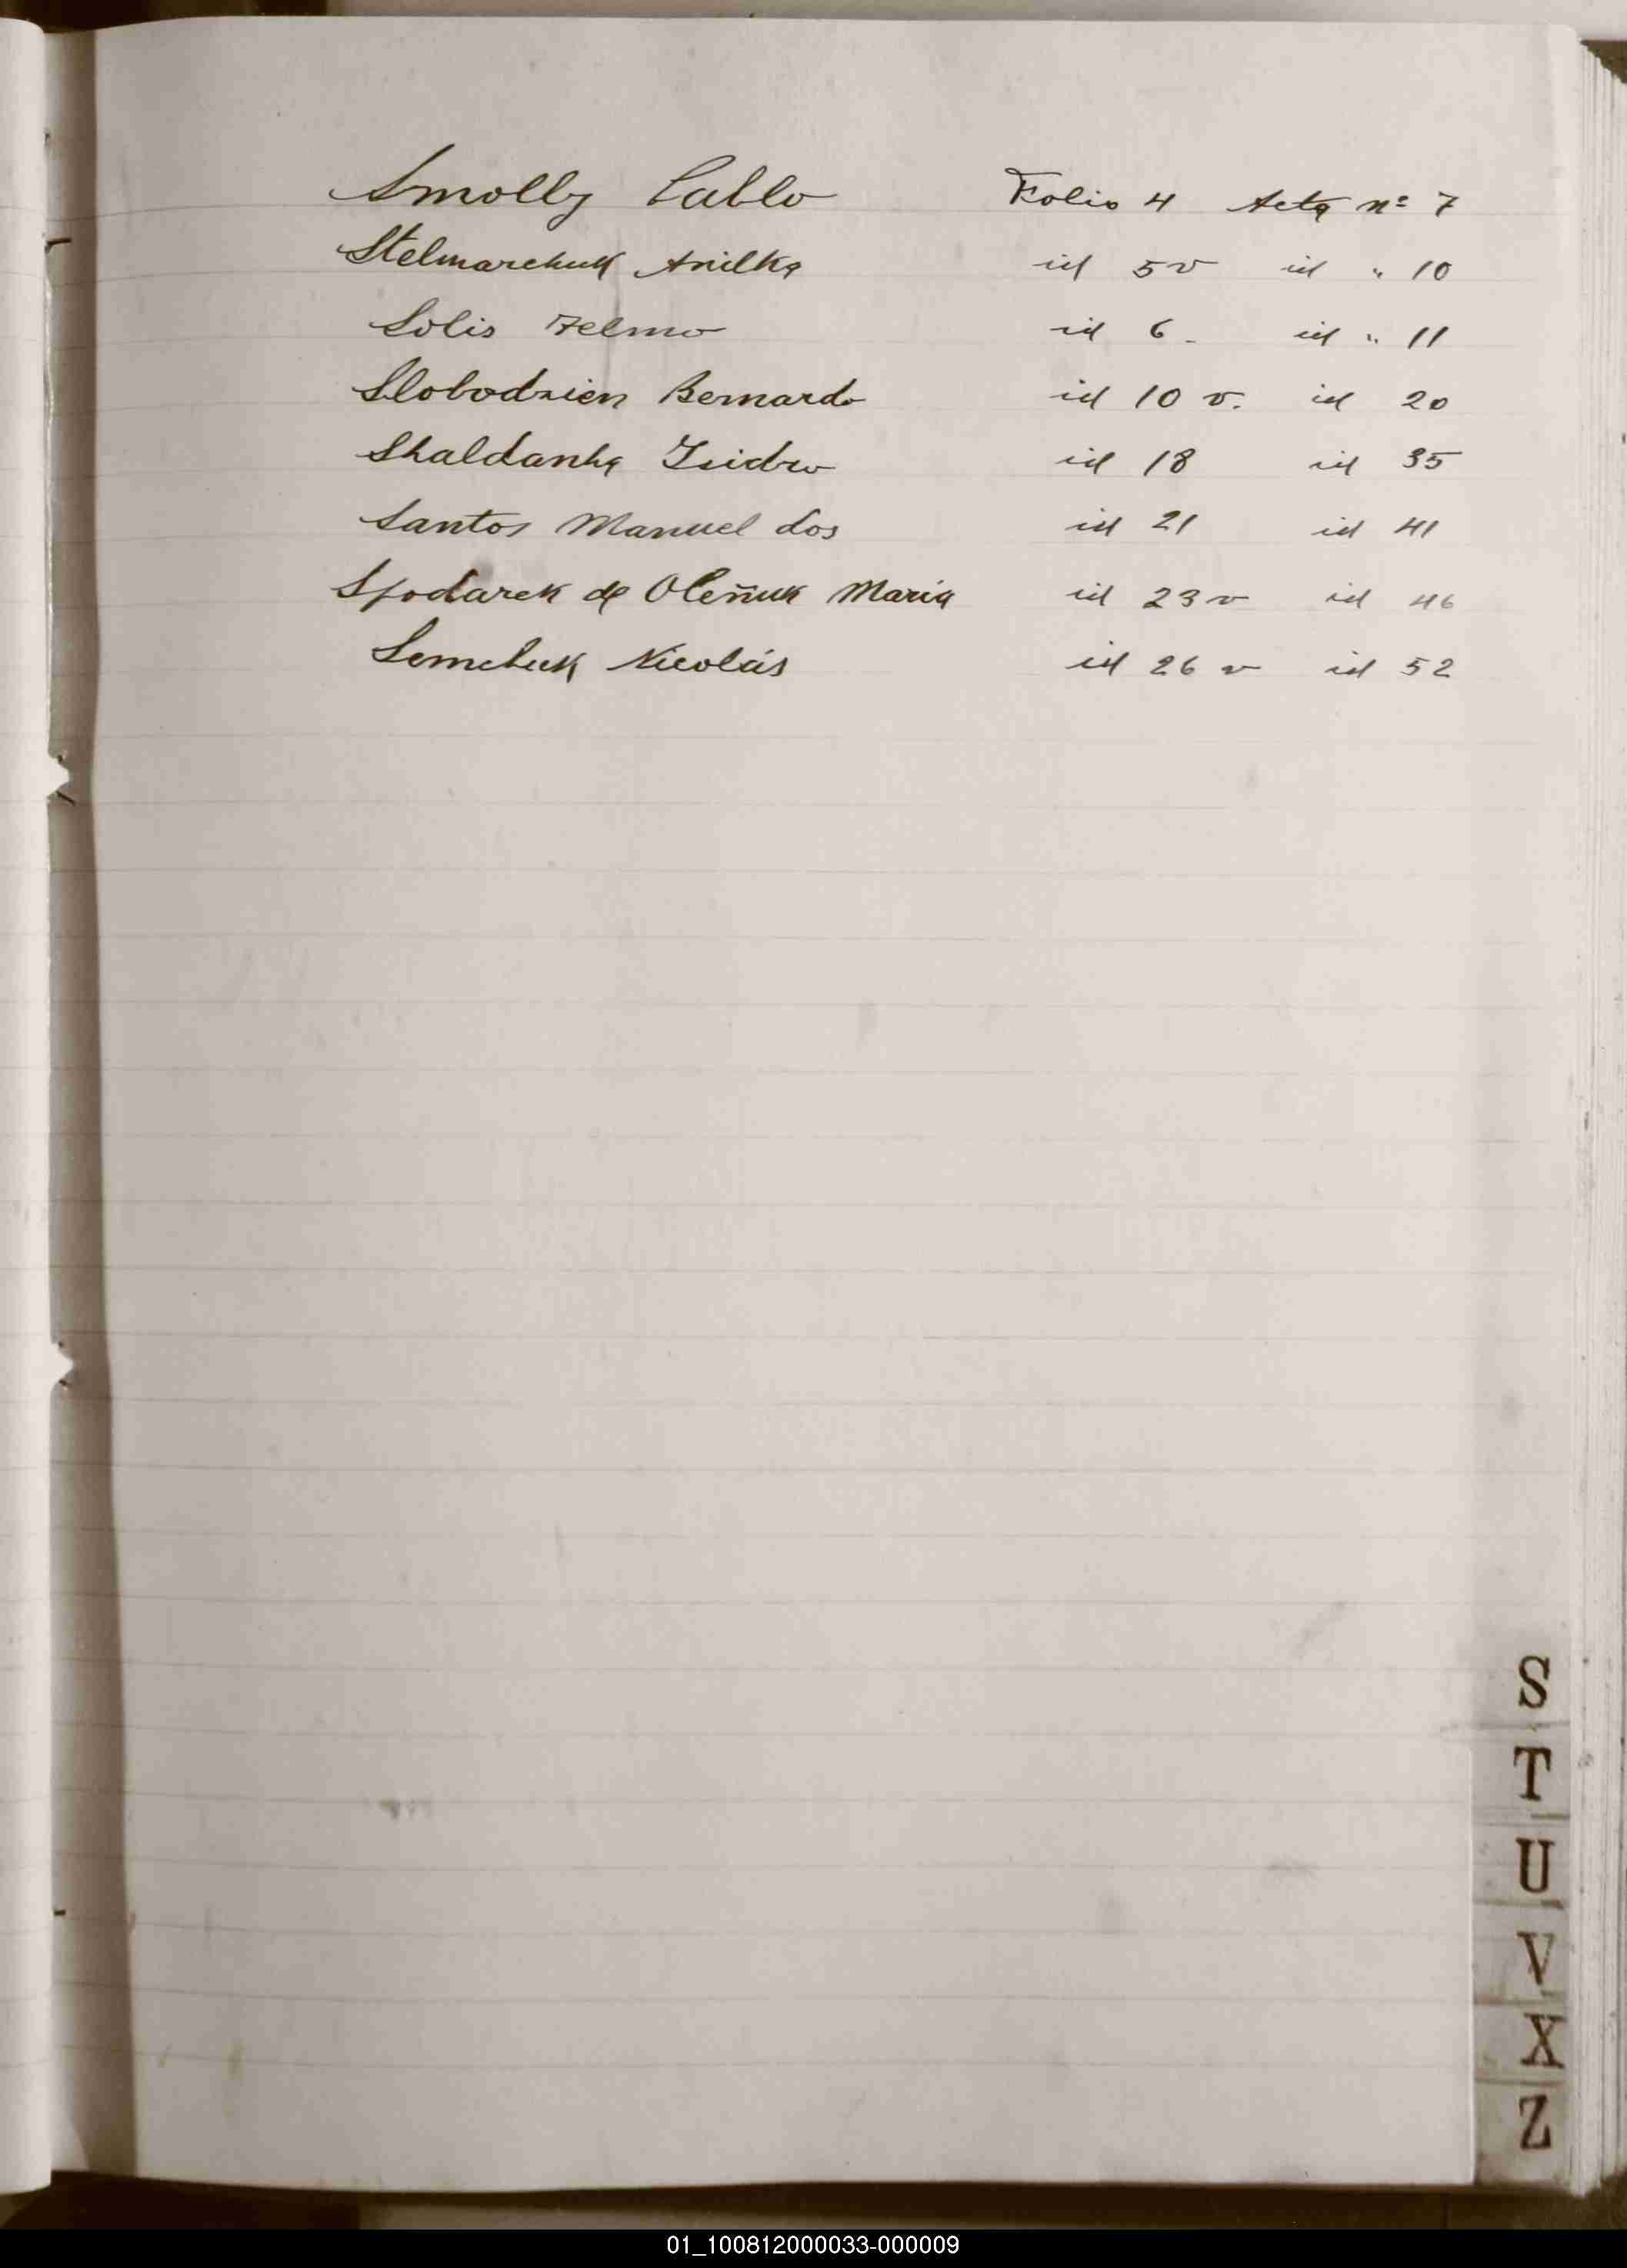 Smolly Pablo Folio 4 Acta nº 7
Stelmarchuk Anilka id 5v id " 10
Solis Telmo id 6 - id " 11
Slobodzien Bernardo id 10 v. id 20
Shaldanha Isidro id 18 id 35
Santos Manuel dos id 21 id 41
Spodarek de Oleñuk María id 23 v id 46
Semchuk Nicolás id 26 v id 52
S
T
U
V
X
Z
01_100812000033-000009